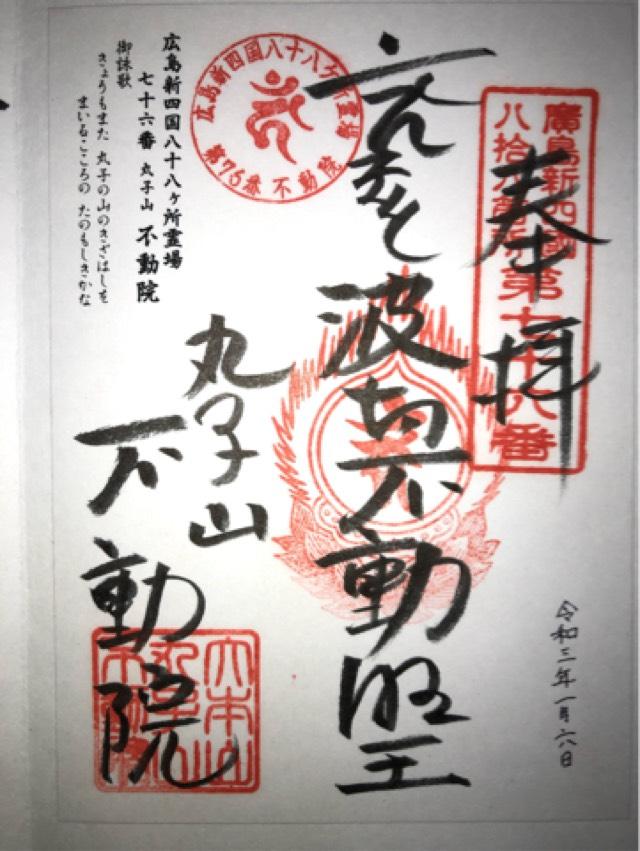 奉拝
廣島新四國
八拾八箇所第七十六番
波切不動明王
丸子山
不動院
令和三年一月六日
広島新四国八十八ヶ所霊場
第76番 不動院
広島新四国八十八ヶ所霊場
七十六番 丸子山 不動院
御詠歌
きょうもまた 丸子の山のきざはしを
まいるこころの たのもしきかな